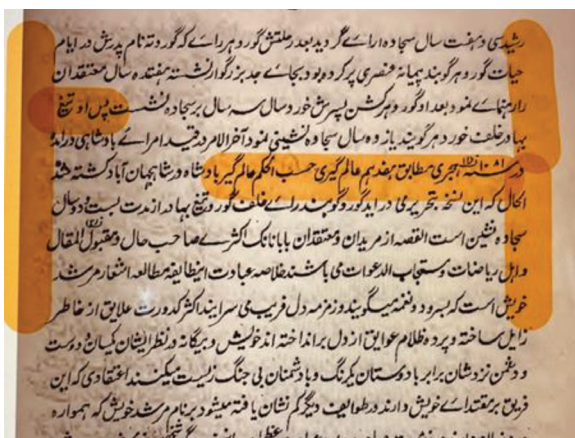 رشیدسی و هفت سال سجاده ارائے گردید بعد رحلتش گورو هر رائے که گوردته نام پدرش در ایام
حیات گورو هرگوبند پیمانهٔ عنصری پر کرده بود بجائے جد بزرگوار نشسته هفتده سال معتقدان
را رهنمائے نمود بعد او گورو هرکشن پسرش خورد سال سه سال بر سجاده نشست پس او تیغ
بهادر خلف خورد هرگوبند یازده سال سجاده نشینی نمود آخر الامر در قید امرائے بادشاهی درآمده
در سنه ۱۰۸۱ هجری مطابق هفدهم عالم گیری حسب الحکم عالم گیر بادشاه در شاهجهان آباد کشته شد
الحال که این نسخه بتحریر می در اید گورو گوبند رائے خلف گورو تیغ بهادر از مدت بست و دو سال
سجاده نشین است القصه از مریدان و معتقدان بابا نانک اکثرے صاحب حال و مقبول المقال
و اهل ریاضات و مستجاب الدعوات می باشند خلاصه عبادت اینطایفه مطالعه اشعار مرشد
خویش است که بسرود و نغمه میگویند و زمزمه دل فریب می سرایند اکثر کدورت علایق از خاطر
زایل ساخته و پرده ظلام عوایق از دل برانداخته اند خویش و بیگانه در نظر ایشان یکسان و دوست
و دشمن نزدشان برابر با دوستان یکرنگ و با دشمنان بی جنگ زیست میکنند اعتقادی که این
فریق بر مقتدائے خویش دارند در طوایف دیگر کم نشان یافته میشود بر نام مرشد خویش که همواره